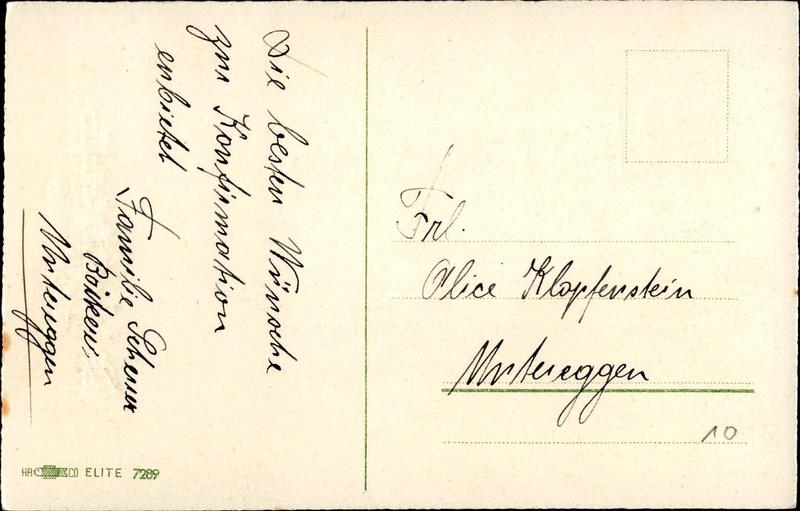 Die besten Wünsche
zur Konfirmation
entbietet
Familie Scheurer
Untereggen
Frl.
Alice Klopfenstein
Untereggen
10
HACO ELITE 7289